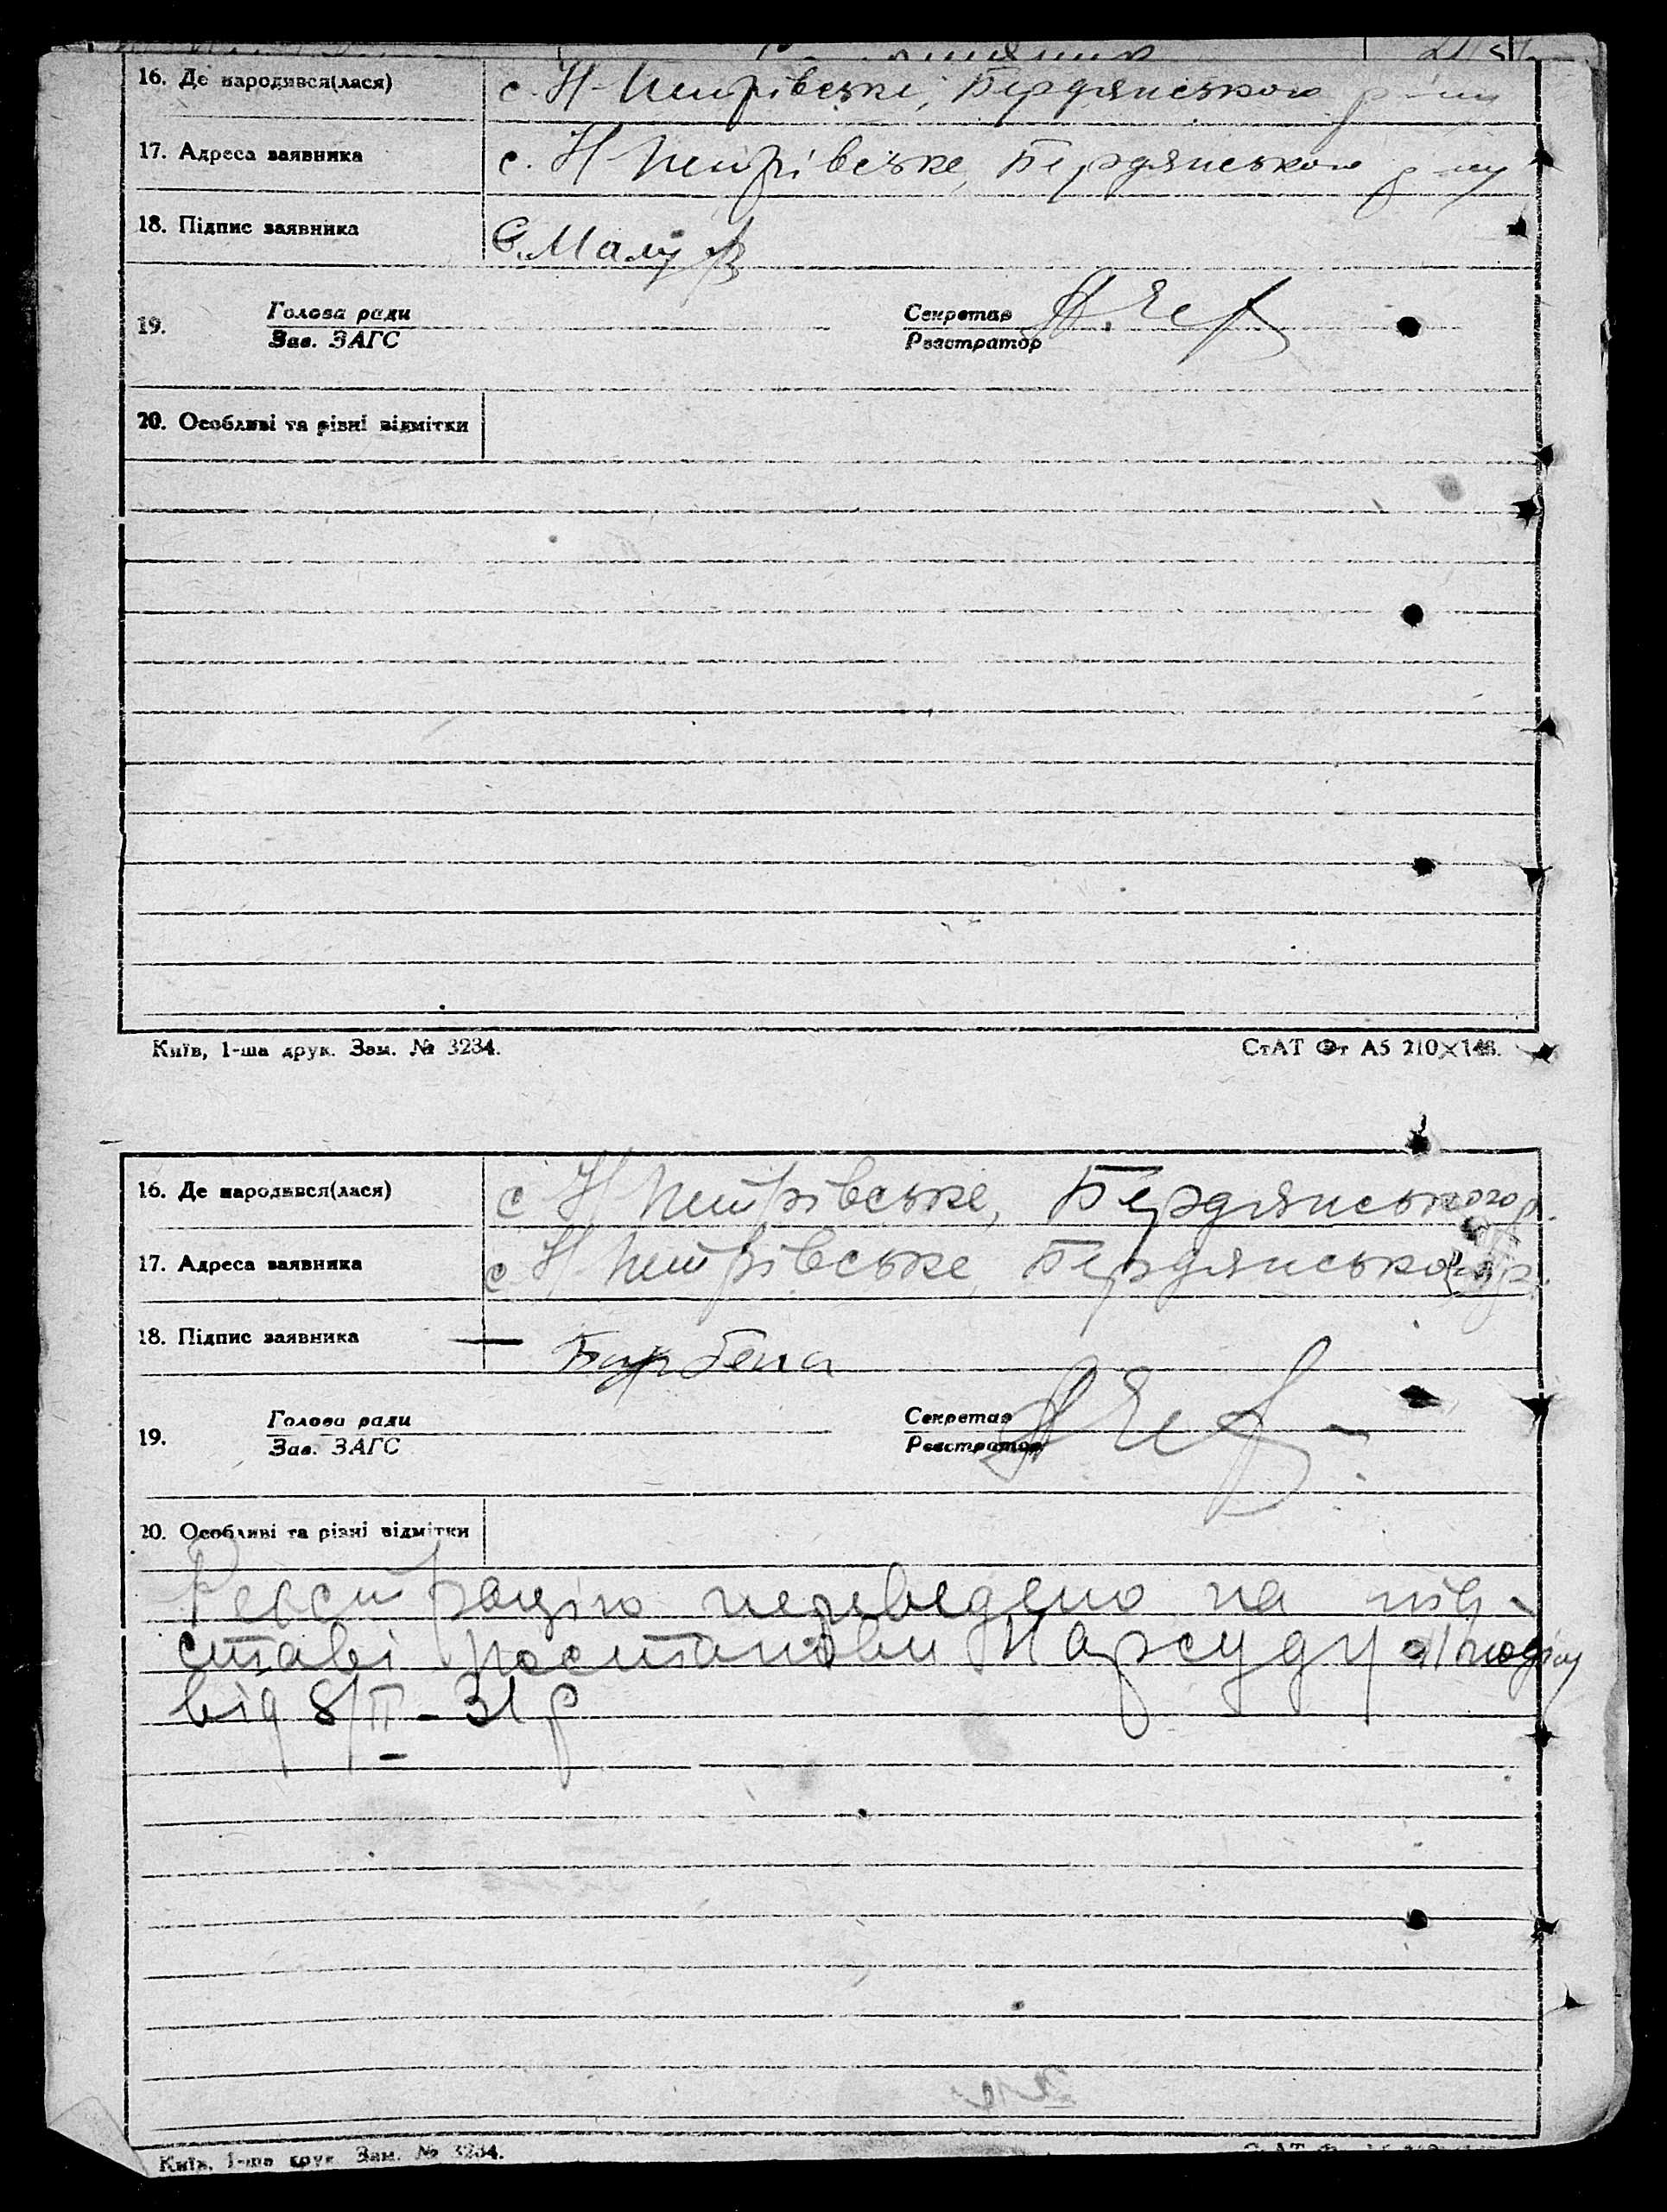 16. Де народився(лася) с. Н-Петрівське, Бердянського р-ну
17. Адреса заявника с. Н Петрівське, Бердянського р-ну
18. Підпис заявника
19. Голова ради Секретар
Зав. ЗАГС Реєстратор
20. Особливі та різні відмітки
Київ, 1-ша друк. Зам. № 3234. СтАТ Фт А5 210×148.
16. Де народився(лася) с Н Петрівське, Бердянського р.
17. Адреса заявника с Н Петрівське, Бердянського
18. Підпис заявника
19. Голова ради Секретар
Зав. ЗАГС Реєстратор
20. Особливі та різні відмітки
Реєстрацію переведено на під-
ставі постанови Нарсуду
від 8/II - 31 р
Київ, 1-ша друк. Зам. № 3234.